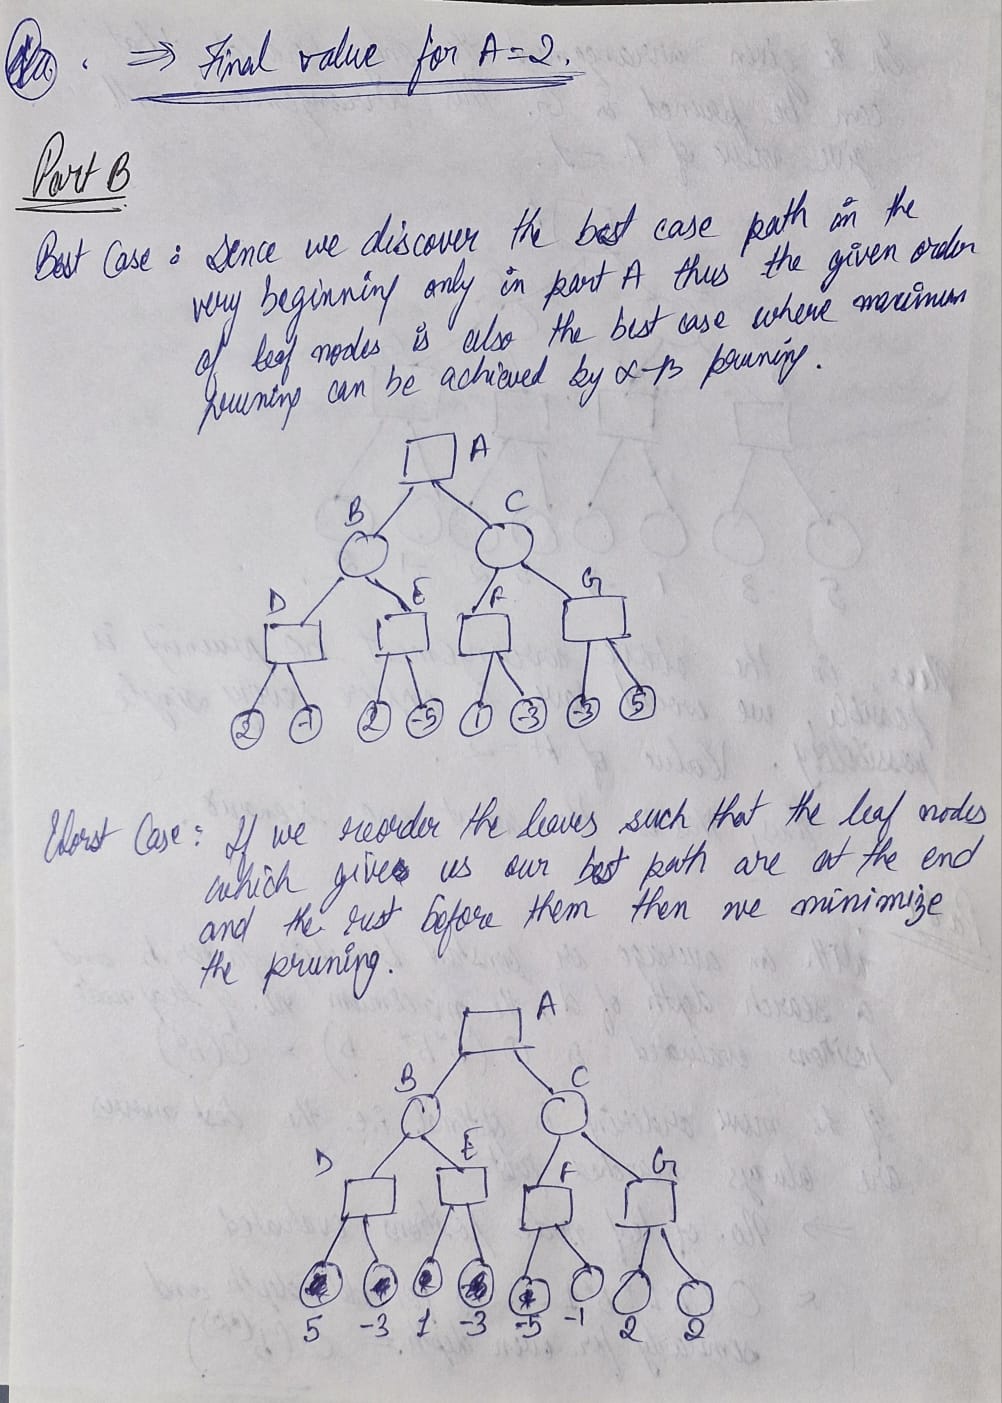 ⇒ Final value for A=2.
Part B
Best Case : Sence we discover the best case path in the
very beginning only in part A thus the given order
of leaf nodes is also the best case where maximum
pruning can be achieved by α-β pruning.
A
B C
D E F G
2 -1 2 -5 1 -3 -3 5
Worst Case : If we reorder the leaves such that the leaf nodes
which gives us our best path are at the end
and the rest before them then we minimize
the pruning.
A
B C
D E F G
5 -3 1 -3 -5 -1 2 2